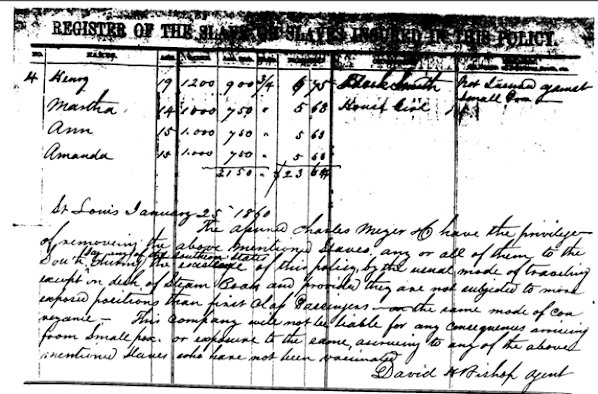 REGISTER OF THE SLAVE OR SLAVES INSURED IN THIS POLICY.
NO. NAMES. AGE
4 Henry 19 1200 900 3/4 6 75 Black Smith Not Insured against
Small Pox
Martha 14 1000 750 " 5 63 House Girl
Ann 15 1.000 750 " 5 63
Amanda 15 1.000 750 " 5 63
$23 64
St Louis January 25th 1860
The assured Charles Meyer & Co have the privilege
of removing the above mentioned Slaves, any or all of them to the
or any of the southern States
South during the existence of this policy, by the usual mode of traveling
except on deck of Steam Boats and provided they are not subjected to more
exposed positions than first Class Passengers on the same mode of con
veyance – This Company will not be liable for any consequences arising
from Small pox or exposure to the same, accruing to any of the above
mentioned Slaves who have not been vaccinated
David H Bishop agent